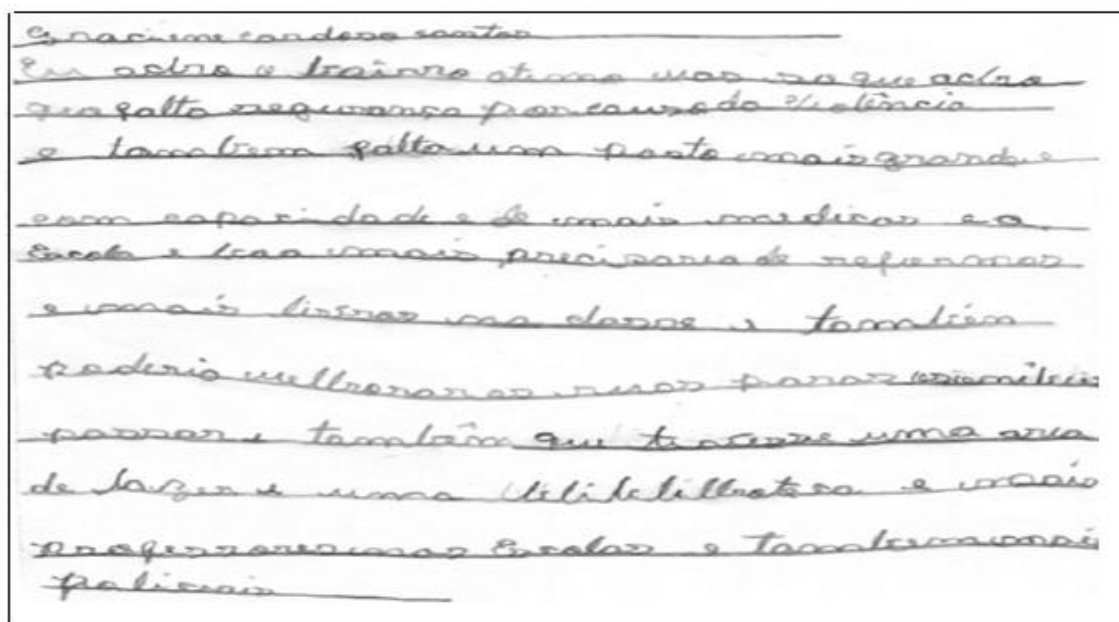 Graciene cardoso santos
Eu acho o bairro otimo mas so que acho
que falta segurança por causa da violência
e tambem falta um posto mais grande
com capacidade e de mais medicos e a
Escola e boa mais precisaria de reformas
e mais livros na classe e também
poderia melhorar as ruas para os
passar e também que tivesse uma area
de lazer e uma e mais
professores nas Escolas e tambem mais
policiais